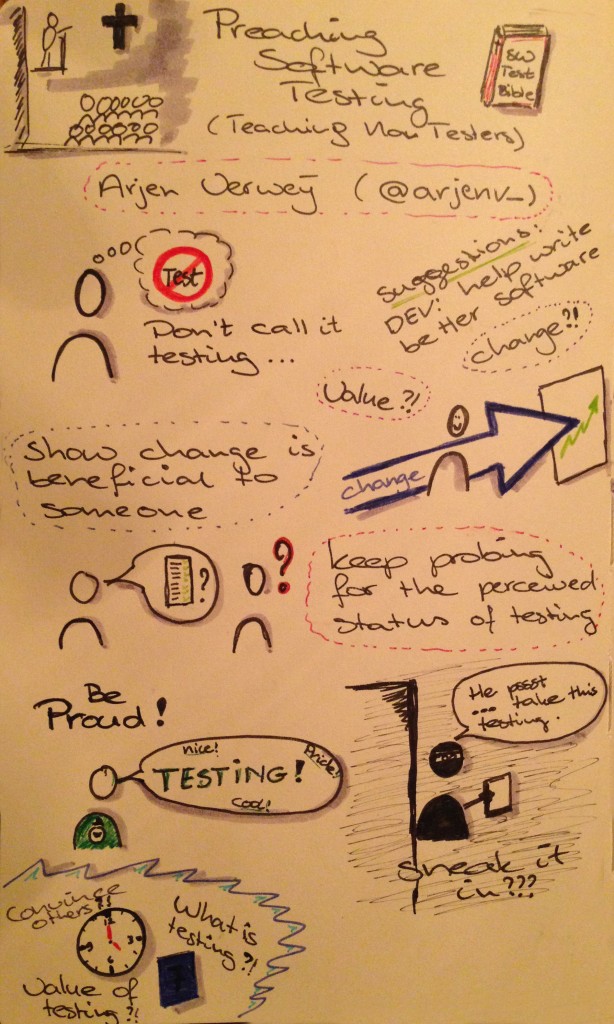 Preaching
Software
Testing
(Teaching Non Testers)
SW
Test
Bible
Arjen Verwey (@arjenv_)
Test
Don't call it
testing...
suggestions:
DEV: help write
better software
change?!
Value?!
show change is
beneficial to
someone
change
?
?
keep probing
for the perceived
status of testing
Be
Proud!
nice!
Pride!
TESTING!
cool!
He pssst
... take this
testing.
sneak it
in???
Convince
others?!
What is
testing?!
Value of
testing?!